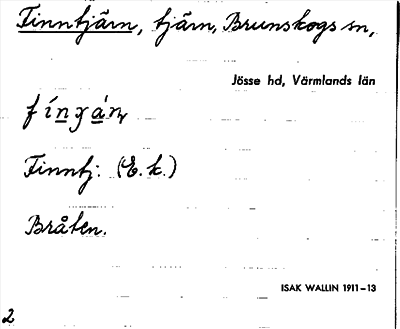 Finntjärn, tjärn, Brunskogs sn,
Jösse hd, Värmlands län
Finntj. (E. k.)
Bråten.
ISAK WALLIN 1911–13
2